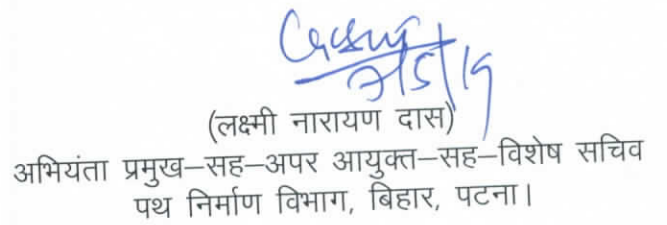 7/5/19
(लक्ष्मी नारायण दास)
अभियंता प्रमुख–सह–अपर आयुक्त–सह–विशेष सचिव
पथ निर्माण विभाग, बिहार, पटना।